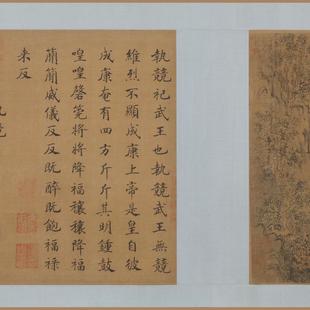 執競祀武王也執競武王無競
維烈不顯成康上帝是皇自彼
成康奄有四方斤斤其明鍾鼓
喤喤磬筦將將降福穰穰降福
簡簡威儀反反既醉既飽福祿
来反